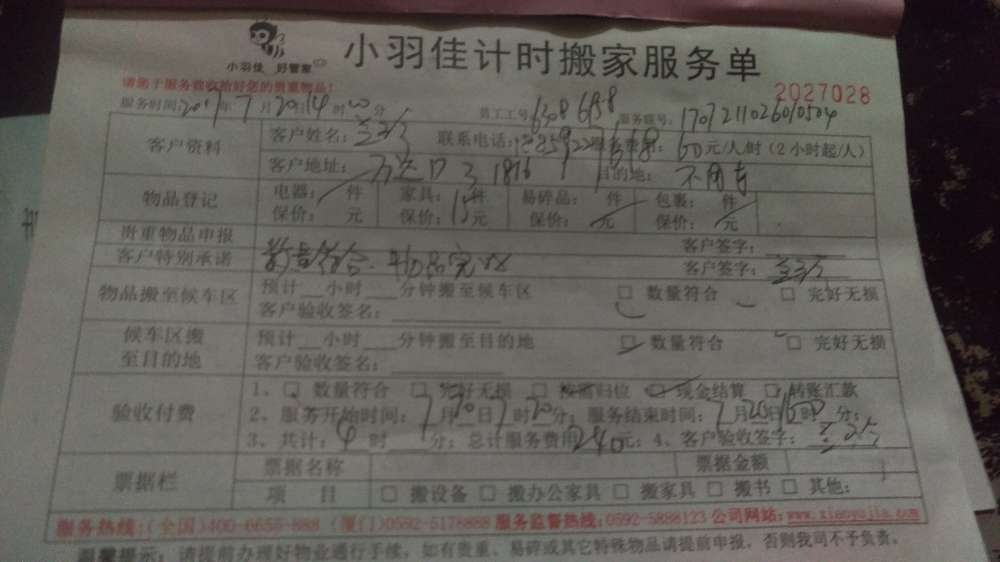 小羽佳 好管家
小羽佳计时搬家服务单
请您于服务验收前好您的贵重物品!
2027028
服务时间: 年7月20日14时00分 员工工号 服务账号:
客户资料
客户姓名: 联系电话: 60元/人/时(2小时起/人)
客户地址: 1816 目的地:
物品登记
电器: 件 家具: 件 易碎品: 件 包裹: 件
保价: 元 保价: 元 保价: 元 保价: 元
贵重物品申报 客户签字:
客户特别承诺 数量符合 物品完好 客户签字:
物品搬至候车区
预计 小时 分钟搬至候车区 □ 数量符合 □ 完好无损
客户验收签名:
候车区搬至目的地
预计 小时 分钟搬至目的地 □ 数量符合 □ 完好无损
客户验收签名:
验收付费
1、□ 数量符合 □ 完好无损 □ 按需归位 □ 现金结算 □ 转账汇款
2、服务开始时间:7月20日 时 分;服务结束时间:7月20日 时 分;
3、共计:4时 分;总计服务费用240元;4、客户验收签字:
票据栏
票据名称 票据金额
项 目 □ 搬设备 □ 搬办公家具 □ 搬家具 □ 搬书 □ 其他:
服务热线:(全国)400-6655-888 (厦门)0592-5178888 服务监督热线:0592-5888123 公司网站:www.xiaoyujia.com
温馨提示:请提前办理好物业通行手续,如有贵重、易碎或其它特殊物品请提前申报,否则我司不予负责。